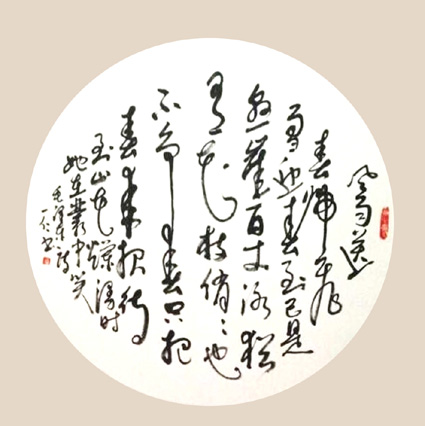 风雨送
春归飞
雪迎春到已是
悬崖百丈冰犹
有花枝俏〻也
不争春只把
春来报待
到山花烂漫时
她在叢中笑
毛泽东诗